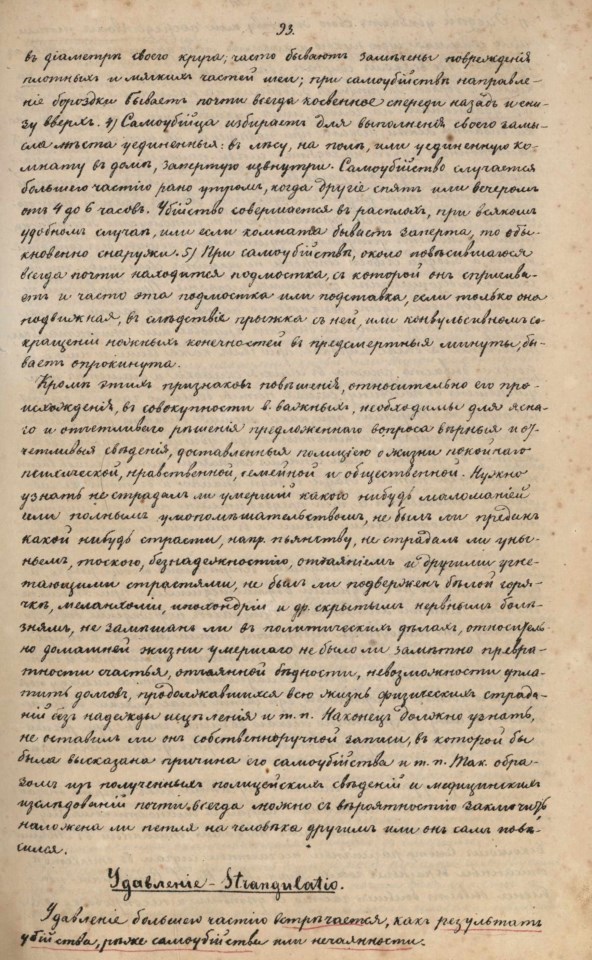 93.
въ діаметрѣ своего круга; часто бываютъ замѣчены поврежденія
плотныхъ и мягкихъ частей шеи; при самоубійствѣ направле-
ніе бороздки бываетъ почти всегда косвенное спереди назадъ и сни-
зу вверхъ. 4) Самоубійца избираетъ для выполненія своего замы-
сла мѣста уединенныя: въ лѣсу, на полѣ, или уединенную ко-
мнату въ домѣ, запертую извнутри. Самоубійство случается
большею частію рано утромъ, когда другіе спятъ или вечеромъ
отъ 4 до 6 часовъ. Убійство совершается въ расплохъ, при всякомъ
удобномъ случаѣ, или если комната бываетъ заперта, то обы-
кновенно снаружи. 5) При самоубійствѣ, около повѣсившагося
всегда почти находится подмостка, съ которой онъ спрыгива-
етъ и часто эта подмостка или подставка, если только она
подвижная, въ слѣдствіе прыжка съ ней, или конвульсивномъ со-
кращеніи ножныхъ конечностей въ предсмертныя минуты, бы-
ваетъ опрокинута.
Кромѣ этихъ признаковъ повѣшенія, относительно его про-
исхожденія, въ совокупности в. важныхъ, необходимы для ясна-
го и отчетливаго рѣшенія предложеннаго вопроса вѣрныя и от-
четливыя свѣденія, доставленныя полиціею о жизни покойнаго
психической, нравственной, семейной и общественной. Нужно
узнать не страдалъ ли умершій какого нибудь маломаніей
или полнымъ умопомѣшательствомъ, не былъ ли преданъ
какой нибудь страсти, напр. пьянству, не страдалъ ли уны-
ньемъ, тоскою, безнадежностію, отчаяніемъ и другими угне-
тающими страстями, не былъ ли подверженъ бѣлой горя-
чкѣ, меланхоліи, ипохондріи и др. скрытымъ нервнымъ болѣ-
знямъ, не замѣшанъ ли въ политическихъ дѣлахъ, относитель-
но домашней жизни умершаго не было ли замѣтно превра-
тности счастья, отчаянной бѣдности, невозможности упла-
тить долговъ, продолжавшихся всю жизнь физическихъ страда-
ній безъ надежды исцѣленія и т. п. Наконецъ должно узнать,
не оставилъ ли онъ собственноручной записи, въ которой бы
была высказана причина его самоубійства и т. п. Так. обра-
зомъ изъ полученныхъ полицейскихъ свѣденій и медицинскихъ
изслѣдованій почти всегда можно съ вѣроятностію заключить,
наложена ли петля на человѣка другимъ или онъ самъ повѣ-
сился.
Удавленіе - Strangulatio.
Удавленіе большею частію встрѣчается, какъ результатъ
убійства, рѣже самоубійства или нечаянности.